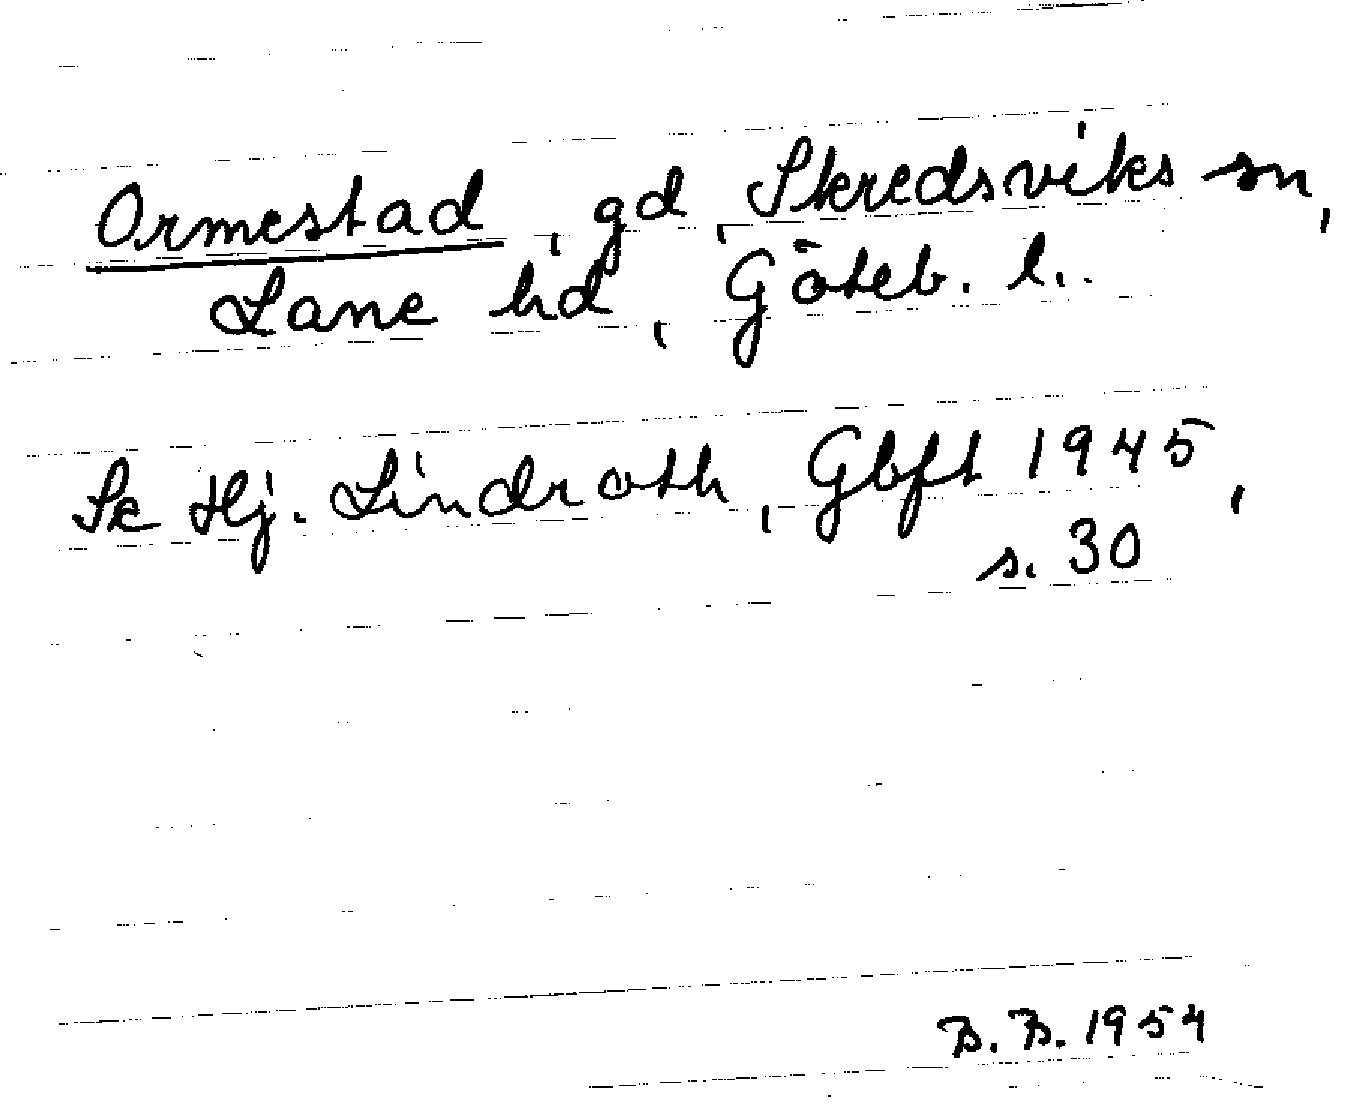 Ormestad, gd, Skredsviks sn,
Lane hd, Göteb. l..
Se Hj. Lindroth, Gbft 1945,
s. 30
B. B. 1954